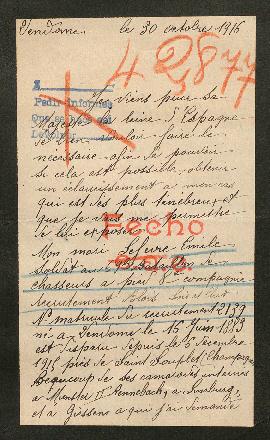 Vendôme. le 30 octobre 1916
42877
Je viens prier sa
Majesté la reine d'Espagne
de bien vouloir faire le
nécessaire afin de pouvoir
si cela est possible obtenir
un éclaircissement à mon cas
qui est des plus ténébreux et
que je vais me permettre
de lui exposer.
Pedir informes
Fecho
Mon mari Lefèvre Emile
soldat au Bataillon de
chasseurs à pied 8e compagnie
recrutement Blois Loir et Cher
No matricule du recrutement 2139
né à Vendôme le 16 Juin 1883
est disparu depuis le 8 décembre
1915 près de Saint Souplet (Champagne)
Beaucoup de ses camarades internés
à Munster à à
et à Giessens à qui j'ai demandé